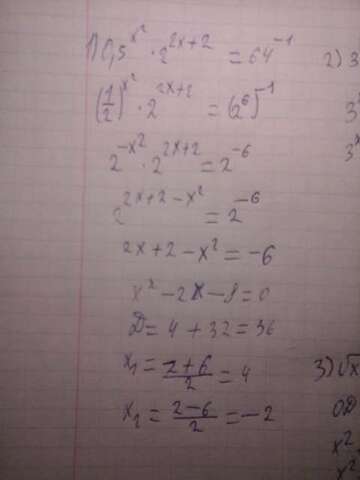 1) 0,5^{x^2} · 2^{2x+2} = 64^{-1}
(1/2)^{x^2} · 2^{2x+2} = (2^6)^{-1}
2^{-x^2} · 2^{2x+2} = 2^{-6}
2^{2x+2-x^2} = 2^{-6}
2x+2-x^2 = -6
x^2-2x-8=0
D = 4+32=36
x_1 = (2+6)/2 = 4
x_2 = (2-6)/2 = -2
2) 3
3
3^x
3) √x
OD
x^2
x^2